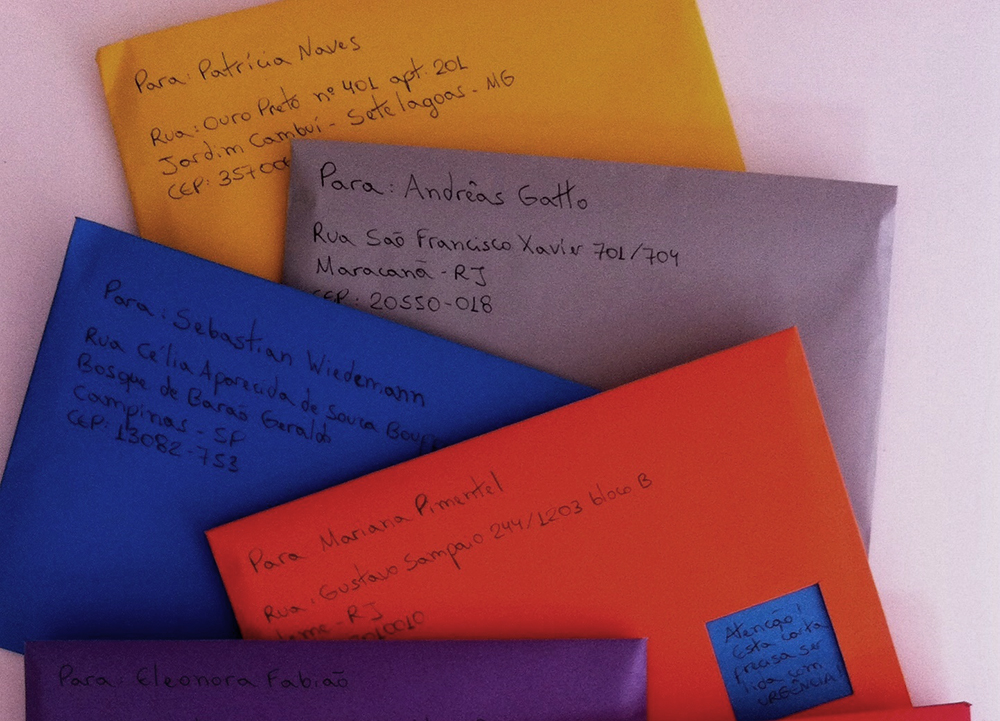 Para: Patrícia Naves
Rua: Ouro Preto nº 401 apt. 201
Jardim Cambuí - Sete lagoas - MG
CEP: 35700
Para: Andrêas Gatto
Rua Saõ Francisco Xavier 701/704
Maracanã - RJ
CEP: 20550-018
Para: Sebastian Wiedemann
Rua Célia Aparecida de Souza
Bosque de Baraõ Geraldo
Campinas - SP
CEP: 13082-753
Para Mariana Pimentel
Rua: Gustavo Sampaio 244/1203 bloco B
Leme - RJ
010010
Atenção!
Esta carta
precisa ser
lida com
URGÊNCIA!
Para: Eleonora Fabiaõ